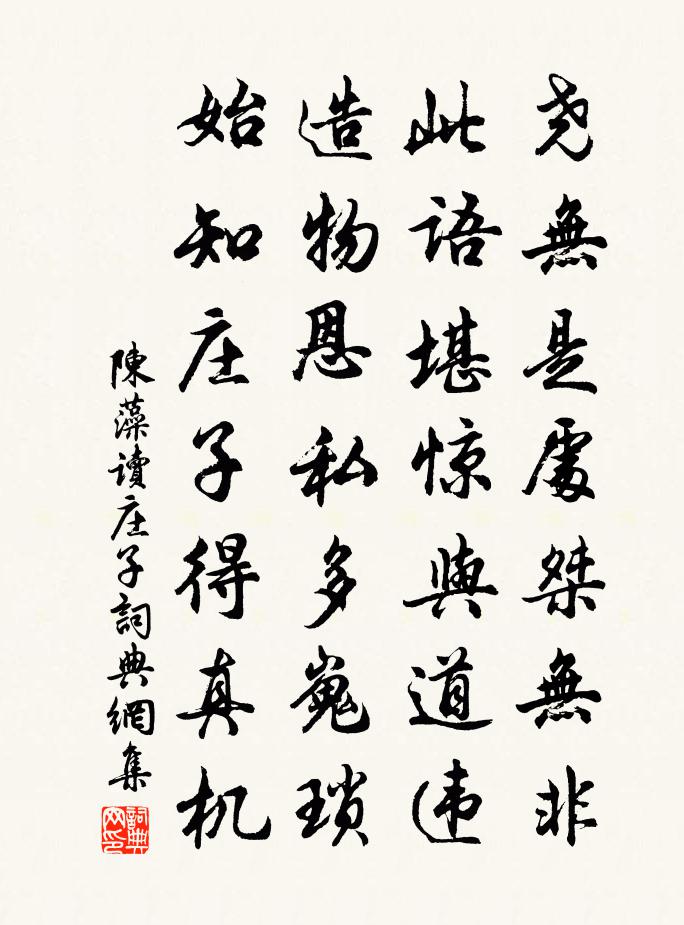 尧無是處桀無非
此語堪惊與道违
造物恩私多嵬瑣
始知庄子得真机
陳藻讀庄子詞典網集
詞典
网印